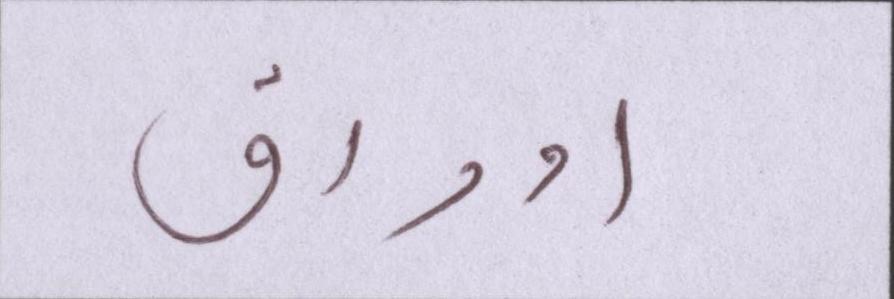 اوراق